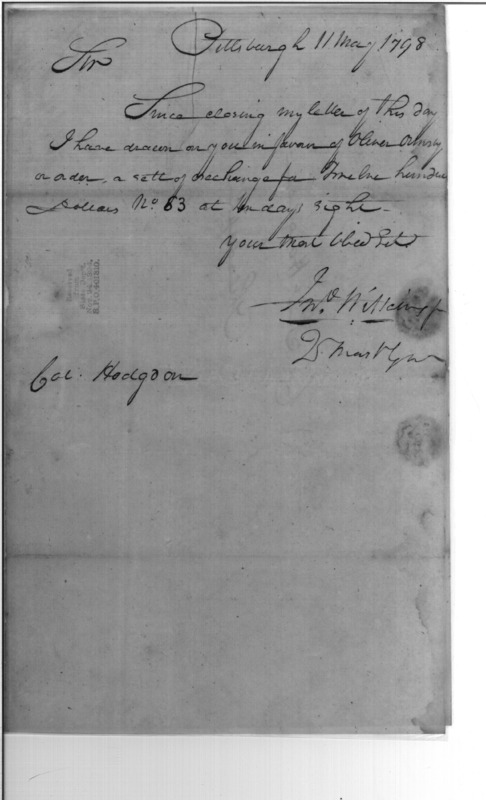 Pittsburgh 11 May 1798
Sir
Since closing my letter of this day
I have drawn on you in favour of Oliver Ormsby
or order, a sett of exchange for Twelve hundred
Dollars No 53 at ten days sight.
Your most Obed Sert
Jno Wilkins Jr
Col. Hodgdon